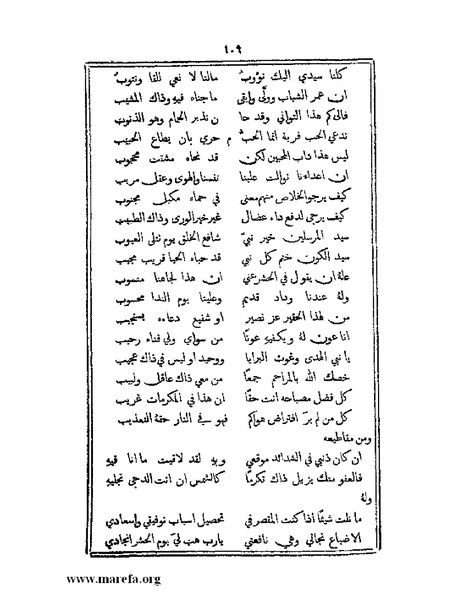 ١٠٩
كلنا سيدي اليك نوٴوب مالنا لا نعي للقا ونتوب
ان عمر الشباب وولّى وابقى ما جناه فيه وذاك المشيب
فالى كم هذا التواني وقد حا ن نذير الحمام وهو الذنوب
ندعي الحب فرية انما الحب م حري بان يطاع الحبيب
ليس هذا داب المحبين لكن قد نحاه مشتت محجوب
ان اعداءنا توالت علينا نفسنا والهوى وعقل مريب
كيف يرجو الخلاص منهم معنى في حماه مكبل مجنوب
كيف يرجى لدفع داء عضال غير خير الورى وذاك الطبيب
سيد المرسلين خير نبيّ شافع الخلق يوم تتلى العيوب
سيد الكون ختم كل نبي قد حباه الحيا قريب مجيب
علهُ ان يقول في الحشر عني ان هذا لجاهنا منسوب
ولهُ عندنا وداد قديم وعلينا يوم الندا محسوب
من لهذا الحقير عز نصير او شفيع دعاءه يستجيب
انا عون لهُ ويكفيهِ عونًا من سواي ولي فناء رحيب
يا نبي الهدى وغوث البرايا ووحيد او ليس في ذاك عجيب
خصك الله بالمراحم جمعًا من معي ذاك عاقل ولبيب
كل فضل مصباحه انت حقًا ان هذا في المكرمات غريب
كل من لم يرَ افتراض هواكم فهو في النار حقهُ التعذيب
ومن مقاطيعه
ان كان ذنبي في الشدائد موقعي وبهِ لقد لاقيت ما انا فيهِ
فالعفو منك يزيل ذاك تكرمًا كالشمس ان انت الدجى تجليهِ
ولهُ
ما نلت شيئًا اذا كنت المقصر في تحصيل اسباب توفيقي واسعادي
الاضباع نجاتي وهي نافعتي يا رب هب لي يوم الحشر انجادي
www.marefa.org